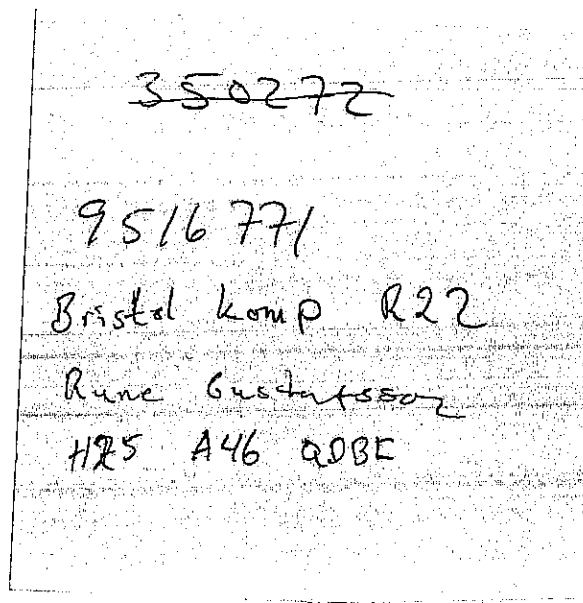 350272
9516771
Bristol komp R22
Rune Gustafsson
H25 A46 QDBE